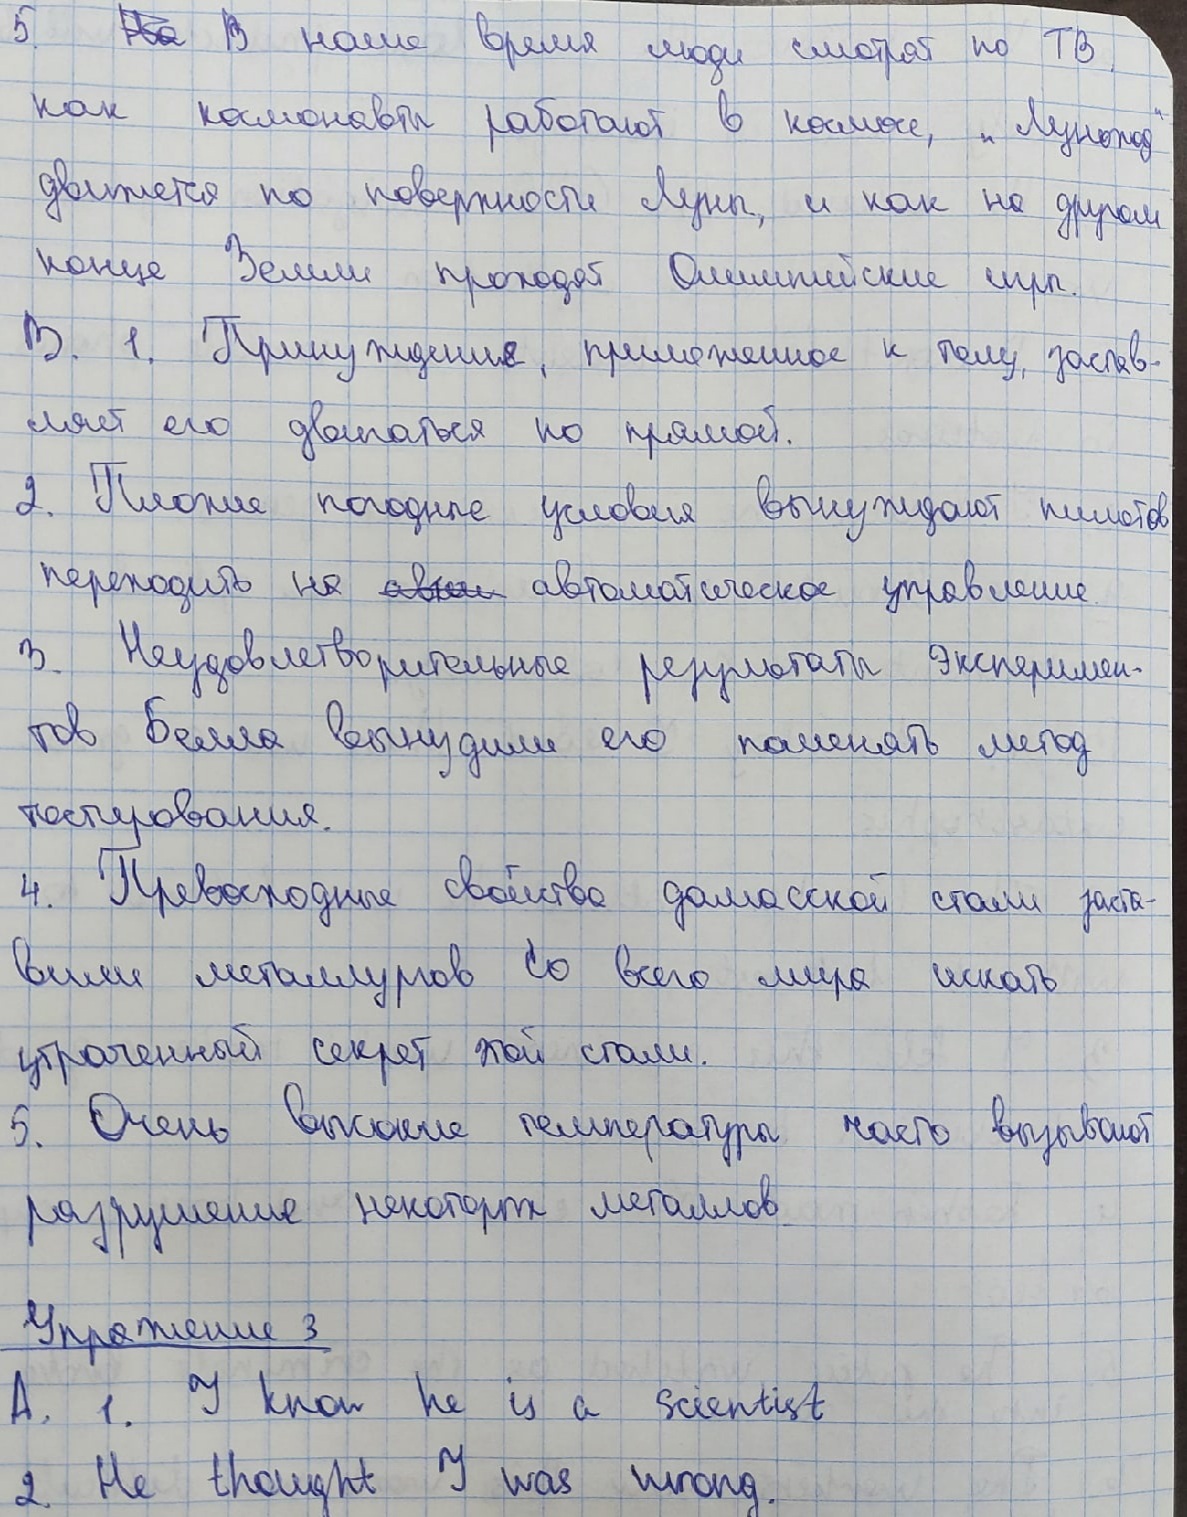 5. В наше время люди смотрят по ТВ,
как космонавты работают в космосе, „Луноход"
движется по поверхности Луны, и как на другом
конце Земли проходят Олимпийские игры.
В. 1. Принуждение, приложенное к телу, застав-
ляет его двигаться по прямой.
2. Плохие погодные условия вынуждают пилотов
переходить на автоматическое управление.
3. Неудовлетворительные результаты эксперимен-
тов Белла вынудили его поменять метод
тестирования.
4. Превосходные свойства дамасской стали заста-
вили металлургов со всего мира искать
утраченный секрет этой стали.
5. Очень высокие температуры часто вызывают
разрушение некоторых металлов
Упражнение 3
А. 1. I know he is a scientist
2. He thought I was wrong.